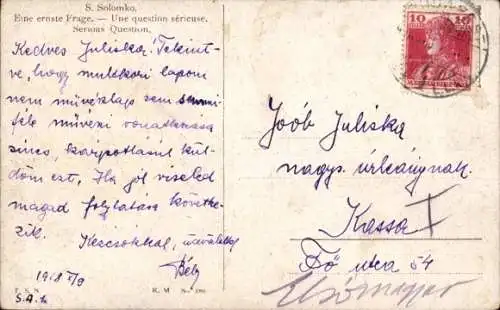 S. Solomko.
Eine ernste Frage. — Une question sérieuse.
Serious Question.
Kedves Juliska! Tekint-
ve, hogy multkori lapom
nem művészlap s sem semmi
féle művészi vonatkozása
nincs, kárpótlásul kül-
döm ezt. Ha jól viseled
magad folytatása követke-
zik.
Kézcsókkal, üdvözlettel
Béla
1918 V/9
10
Joób Juliska
nagys. úrleánynak
Kassa I
Fő utca 54
T. S. N.
R. M
No